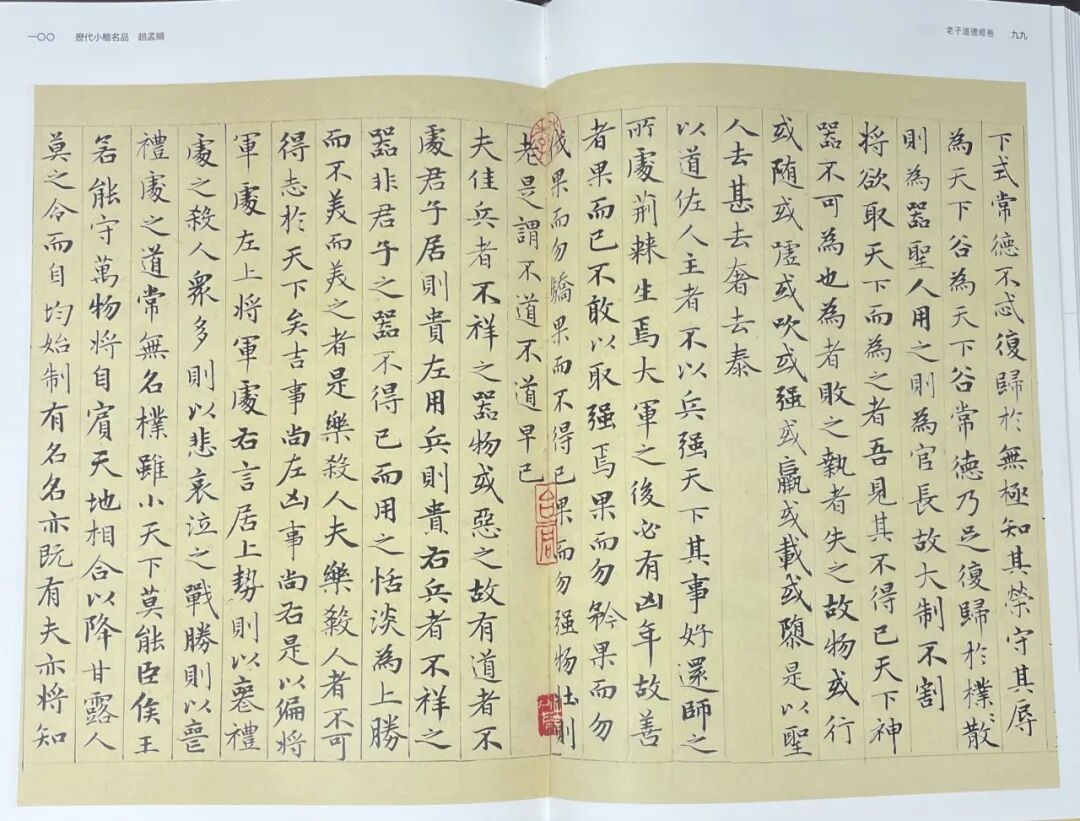 老子道德經卷 九九
下式常德不忒復歸於無極知其榮守其辱
為天下谷為天下谷常德乃足復歸於樸〻散
則為器聖人用之則為官長故大制不割
将欲取天下而為之者吾見其不得已天下神
器不可為也為者敗之執者失之故物或行
或随或噓或吹或强或羸或載或隳是以聖
人去甚去奢去泰
以道佐人主者不以兵强天下其事好還師之
所處荊棘生焉大軍之後必有凶年故善
者果而已不敢以取强焉果而勿矜果而勿
伐果而勿驕果而不得已果而勿强物壯則
老是謂不道不道早已
夫佳兵者不祥之器物或惡之故有道者不
處君子居則貴左用兵則貴右兵者不祥之
器非君子之器不得已而用之恬淡為上勝
而不美而美之者是樂殺人夫樂殺人者不可
得志於天下矣吉事尚左凶事尚右是以偏将
軍處左上将軍處右言居上勢則以喪禮
處之殺人衆多則以悲哀泣之戰勝則以喪
禮處之道常無名樸雖小天下莫能臣侯王
若能守萬物将自賓天地相合以降甘露人
莫之令而自均始制有名名亦既有夫亦将知
一〇〇 歷代小楷名品 趙孟頫